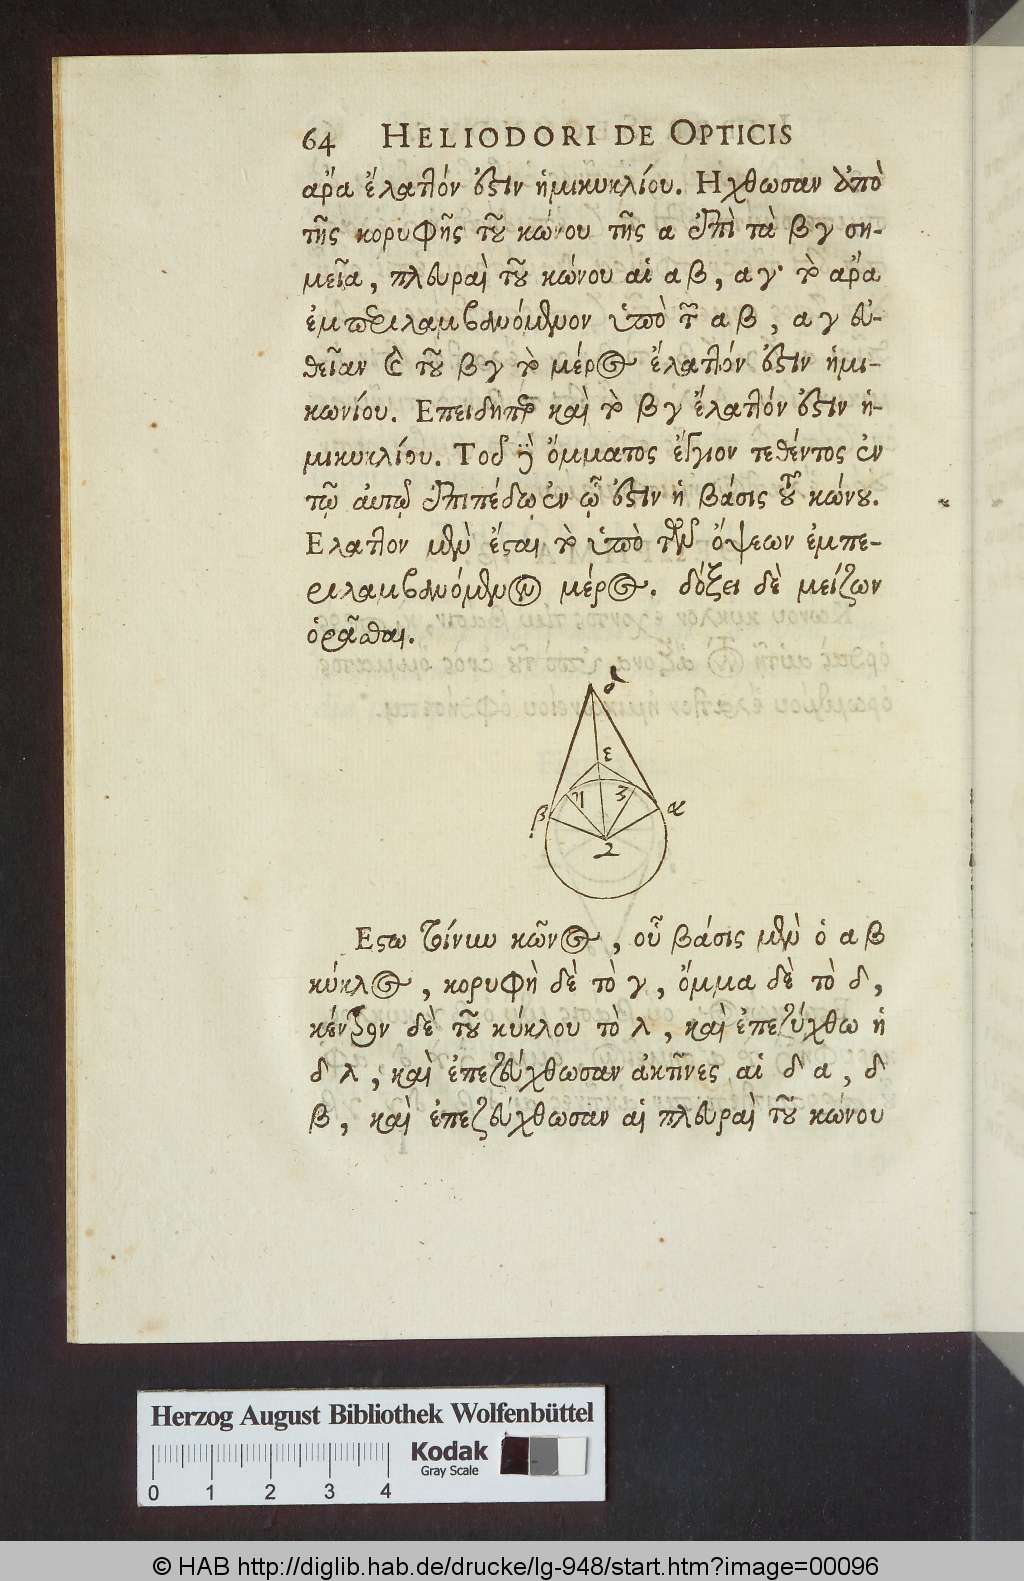 64 HELIODORI DE OPTICIS
ἄρα ἔλαττόν ἐστιν ἡμικυκλίου. Ηχθωσαν ἀπὸ
τῆς κορυφῆς τοῦ κώνου τῆς α ἐπὶ τὰ β γ ση-
μεῖα, πλευραὶ τοῦ κώνου αἱ α β, α γ· τὸ ἄρα
ἐμπεριλαμβανόμενον ὑπὸ τῶν α β, α γ εὐ-
θειῶν καὶ τοῦ β γ τὸ μέρος ἔλαττόν ἐστιν ἡμι-
κωνίου. Επειδήπερ καὶ τὸ β γ ἔλαττόν ἐστιν ἡ-
μικυκλίου. Τοῦ δὲ ὄμματος ἔγγιον τεθέντος ἐν
τῷ αὐτῷ ἐπιπέδῳ ἐν ᾧ ἐστιν ἡ βάσις τοῦ κώνου.
Ελαττον μὲν ἔσται τὸ ὑπὸ τῶν ὄψεων ἐμπε-
ριλαμβανόμενον μέρος. δόξει δὲ μείζων
ὁρᾶσθαι.
δ
ε
η ζ
β α
λ
Εστω τοίνυν κῶνος, οὗ βάσις μὲν ὁ α β
κύκλος, κορυφὴ δὲ τὸ γ, ὄμμα δὲ τὸ δ,
κέντρον δὲ τοῦ κύκλου τὸ λ, καὶ ἐπεζεύχθω ἡ
δ λ, καὶ ἐπεζεύχθωσαν ἀκτῖνες αἱ δ α, δ
β, καὶ ἐπεζεύχθωσαν αἱ πλευραὶ τοῦ κώνου
Herzog August Bibliothek Wolfenbüttel
Kodak
Gray Scale
0 1 2 3 4
© HAB http://diglib.hab.de/drucke/lg-948/start.htm?image=00096